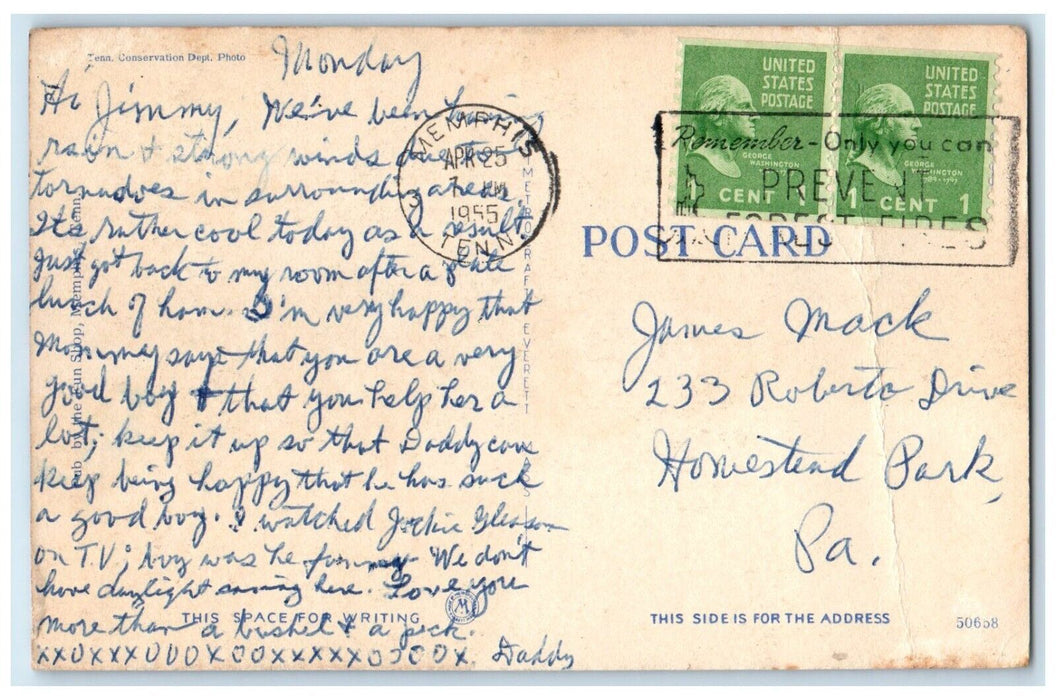 Tenn. Conservation Dept. Photo
Monday
Hi Jimmy, We've been having
rain & strong winds due to
tornadoes in surrounding areas.
It's rather cool today as a result.
Just got back to my room after a late
lunch of ham. I'm very happy that
Mommey says that you are a very
good boy & that you help her a
lot; keep it up so that Daddy can
keep being happy that he has such
a good boy. I watched Jackie Gleason
on T.V.; boy was he funny. We don't
have daylight saving here. Love you
more than a bushel & a peck.
xxoxxxooooxooxxxxxoooox. Daddy
Pub by the Gun Shop, Memphis, Tenn.
THIS SPACE FOR WRITING
M
EVERETT
MEMPHIS
APR 25
1955
TENN.
3
UNITED
STATES
POSTAGE
GEORGE
WASHINGTON
1 CENT 1
UNITED
STATES
POSTAGE
GEORGE
WASHINGTON
1789-1797
1 CENT 1
Remember - Only you can
PREVENT
FOREST FIRES
POST CARD
James Mack
233 Roberta Drive
Homestead Park,
Pa.
THIS SIDE IS FOR THE ADDRESS
50658